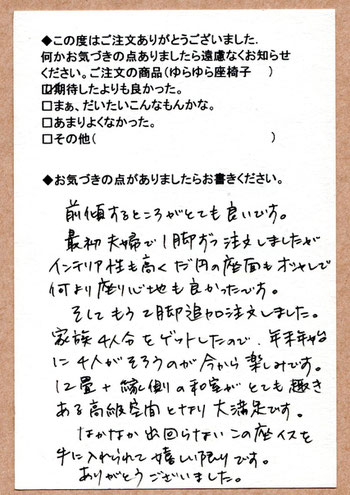 ◆この度はご注文ありがとうございました.
何かお気づきの点ありましたら遠慮なくお知らせ
ください。ご注文の商品(ゆらゆら座椅子 )
☑期待したよりも良かった。
□まぁ、だいたいこんなもんかな。
□あまりよくなかった。
□その他( )
◆お気づきの点がありましたらお書きください。
前傾するところがとても良いです。
最初夫婦で1脚ずつ注文しましたが
インテリア性も高くだ円の座面もオシャレで
何より座り心地も良かったです。
そしてもう2脚追加注文しました。
家族4人分をゲットしたので、年末年始
に4人がそろうのが今から楽しみです。
12畳+縁側の和室がとても趣き
ある高級空間となり大満足です。
なかなか出回らないこの座イスを
手に入れられて嬉しい限りです。
ありがとうございました。